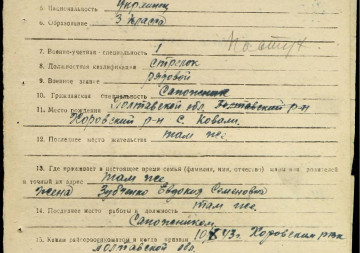 5. Национальность украинец
6. Образование 3 класса
7. Военно-учетная специальность 1
8. Должностная квалификация стрелок
9. Военное звание рядовой
10. Гражданская специальность Сапожник
11. Место рождения Полтавской обл. р-н
Хоровский р-н с. Ковали
12. Последнее место жительства там же
13. Где проживает в настоящее время семья (фамилия, имя, отчество) родителей
и точный их адрес там же
Жена Зубченко Евдокия Семеновна
там же
14. Последнее место работы и должность
Сапожником
15. Каким райгорвоенкоматом и когда призван 43г. Хоровским рвк
Полтавской обл.